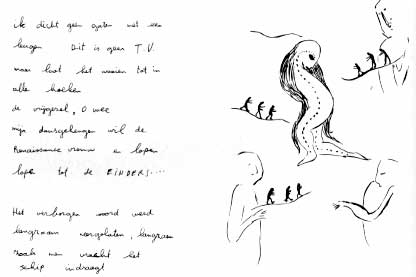 ik dicht geen gaten met een
leugen Dit is geen T.V.
maar laat het waaien tot in
alle hoeken
de vrijgezel, O wee
mijn wil de
Renaissance vrouw en lopen
lopen tot de EINDERS....
Het verborgen woord werd
langzaam, langzaam
zoals men vracht het
schip indraagt